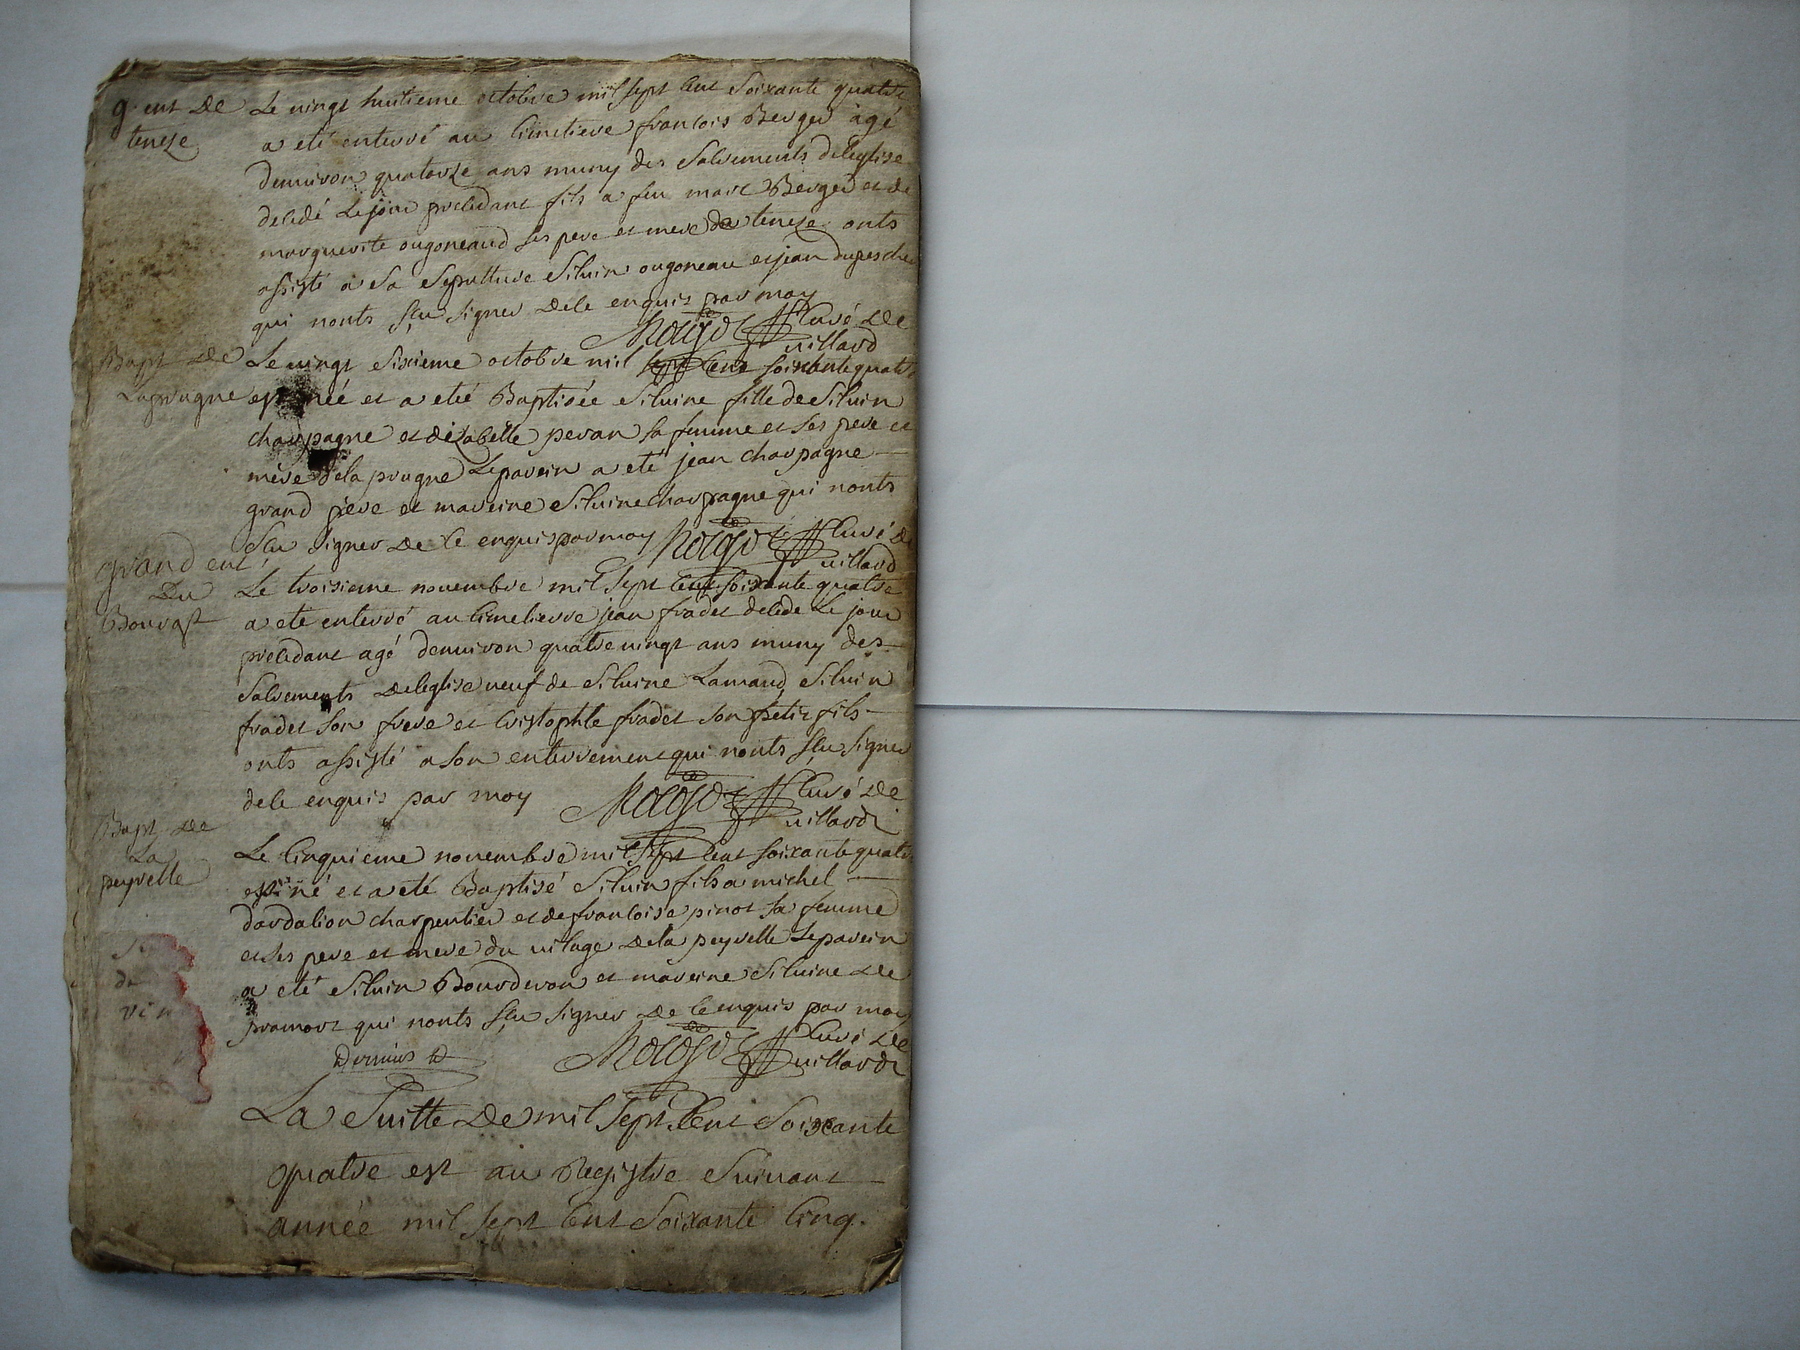 g. ent de
teneze
Le vingt huitieme octobre mil sept cent soixante quatre
a eté enterré au cimetiere francois Berger agé
denviron quatorze ans muny des sacrements deleglise
decedé le jour precedant fils a feu marc Berger et de
marguerite ougoneaud ses pere et mere de teneze onts
assisté a sa sepulture silvin ougoneau et jean
qui nonts sçu signer de ce enquis par moy
curé de
villard
Bapt de
Laprugne
Le vingt sixieme octobre mil sept cent soixante quatre
est née et a eté Baptisée silvine fille de silvin
charpagne et dizabelle peran sa femme et ses pere et
mere de la prugne Le parein a eté jean charpagne
grand pere et mareine silvine charpagne qui nonts
sçu signer de ce enquis par moy
curé de
villard
grand ent
Du
Bouvast
Le troisieme novembre mil sept cent soixante quatre
a eté enterré au cimetierre jean fradet decede le jour
precedant agé denviron quatre vingt ans muny des
sacrements deleglise veuf de silvine Lamaud silvin
fradet son frere et cristophle fradet son petit fils
onts assisté a son enterrement qui nonts sçu signer
de ce enquis par moy
curé de
villard
Bapt de
La
peyrelle
Le cinquieme novembre mil sept cent soixante quatre
est né et a eté Baptisé silvin fils a michel
dardalion charpentier et de francoise pinot sa femme
et ses pere et mere du vilage de la peyrelle Le parein
a eté silvin Bourderon et mareine silvine de
pramort qui nonts sçu signer de ce enquis par moy
curé de
villard
Dernier
La suitte de mil sept cent soixante
quatre est au Registre suivant
année mil sept cent soixante cinq.